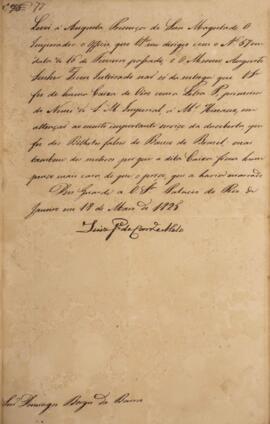 Levei á Augusta Presença de Sua Magestade O
Imperador o Officio que VSª me dirigio com o Nº 57 em
data de 16 de Fevereiro passado, e O Mesmo Augusto
Senhor Ficou Inteirado não só da entrega que VSª
fez de huma Caixa de Oiro com a Letra P, primeira
do Nome de S. M. Imperial, a Mr
attenção ao muito importante serviço da descoberta, que
fez dos Bilhetes falsos do Banco do Brasil, mas
tambem do motivo por que a dita Caixa ficou hum
pouco mais cara, do que o preço, que se havia marcado.
Deos Guarde a VSª Palacio do Rio de
Janeiro em 18 de Maio de 1825
Luiz Jé de Carvº e Mello
Snr Domingos Borges de Barros